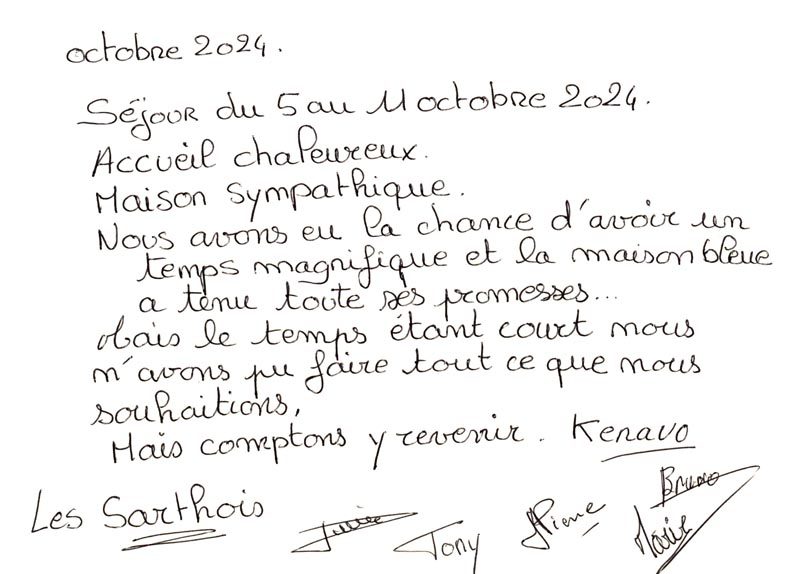 octobre 2024.
Séjour du 5 au 11 octobre 2024.
Accueil chaleureux.
Maison sympathique.
Nous avons eu la chance d'avoir un
temps magnifique et la maison bleue
a tenu toute ses promesses...
Mais le temps étant court nous
n'avons pu faire tout ce que nous
souhaitions,
Mais comptons y revenir. Kenavo
Les Sarthois
Tony
Pierre
Bruno
Marie